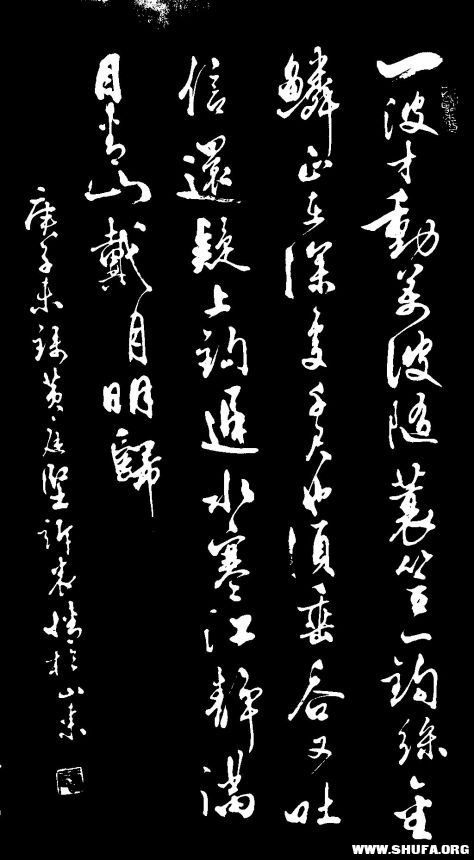 一波才動萬波隨蓑笠一鈎絲金
鱗正在深處千尺也須垂吞又吐
信還疑上鈎遲水寒江靜滿
目青山戴月明歸
庚子末錄黃庭堅訴衷情於山東
WWW.SHUFA.ORG